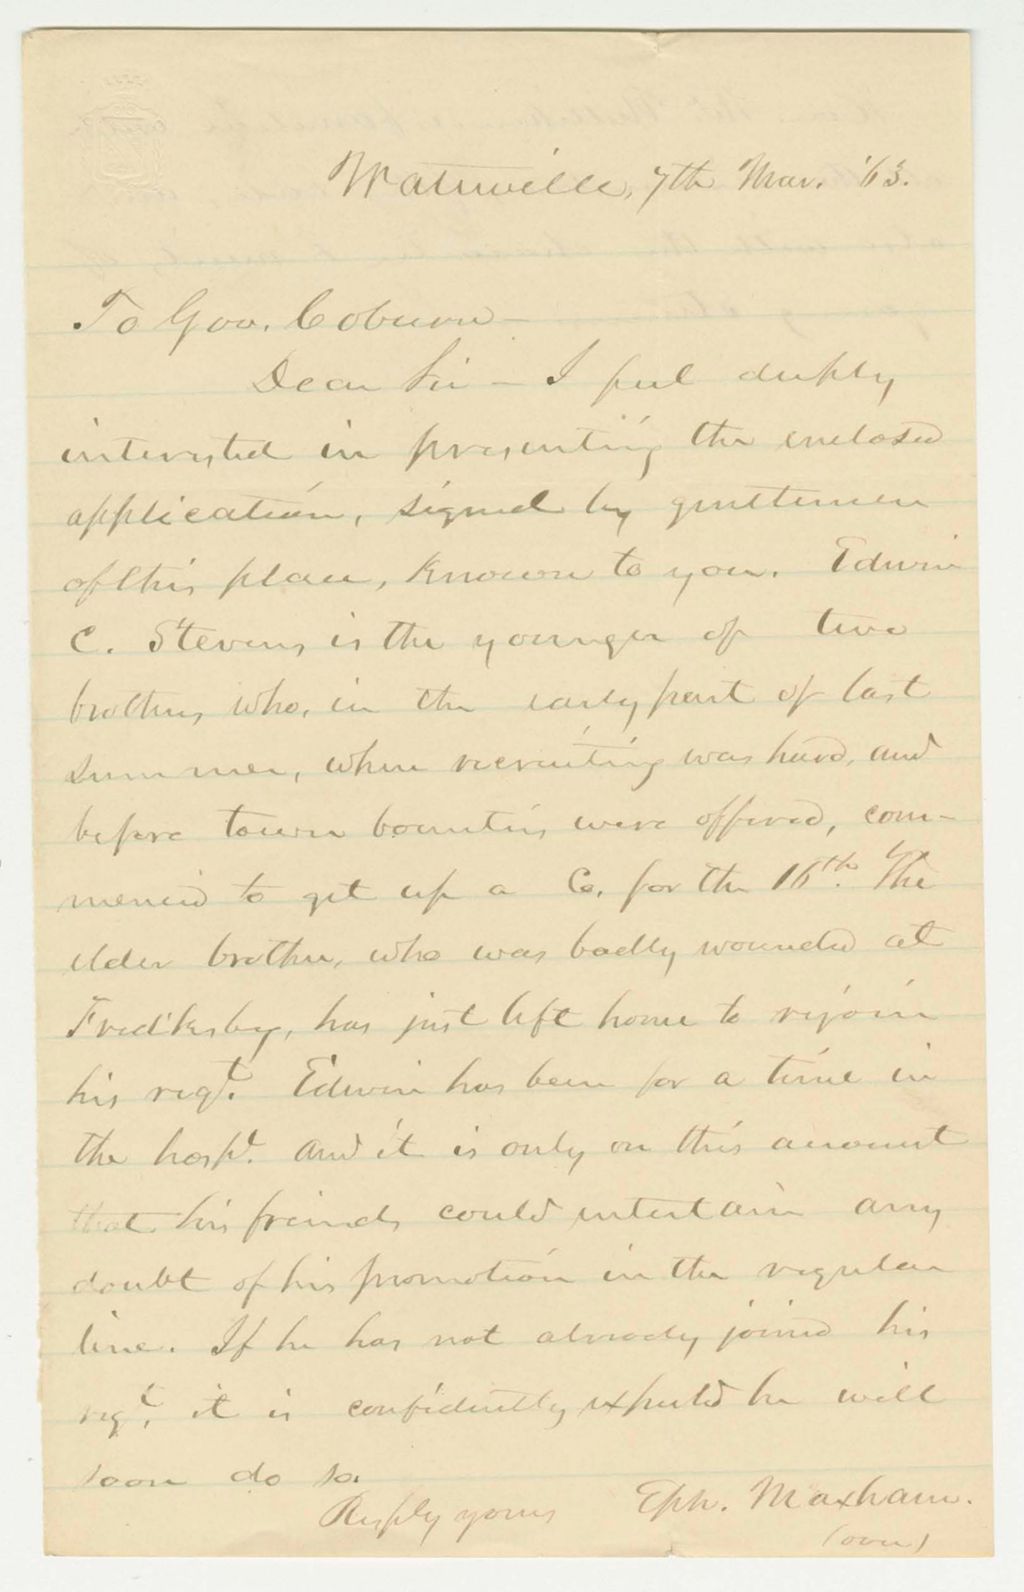 Waterville, 7th Mar. '63.
To Gov. Coburn—
Dear Sir — I feel deeply
interested in presenting the enclosed
application, signed by gentlemen
of this place, known to you. Edwin
C. Stevens is the younger of two
brothers who, in the early part of last
summer, when recruiting was hard, and
before town bounties were offered, com-
menced to get up a Co. for the 16th. The
elder brother, who was badly wounded at
Fred'ksbg, has just left home to rejoin
his regt. Edwin has been for a time in
the hospt. and it is only on this account
that his friends could entertain any
doubt of his promotion in the regular
line. If he has not already joined his
regt, it is confidently expected he will
soon do so.
Resply yours Eph. Maxham.
(over)